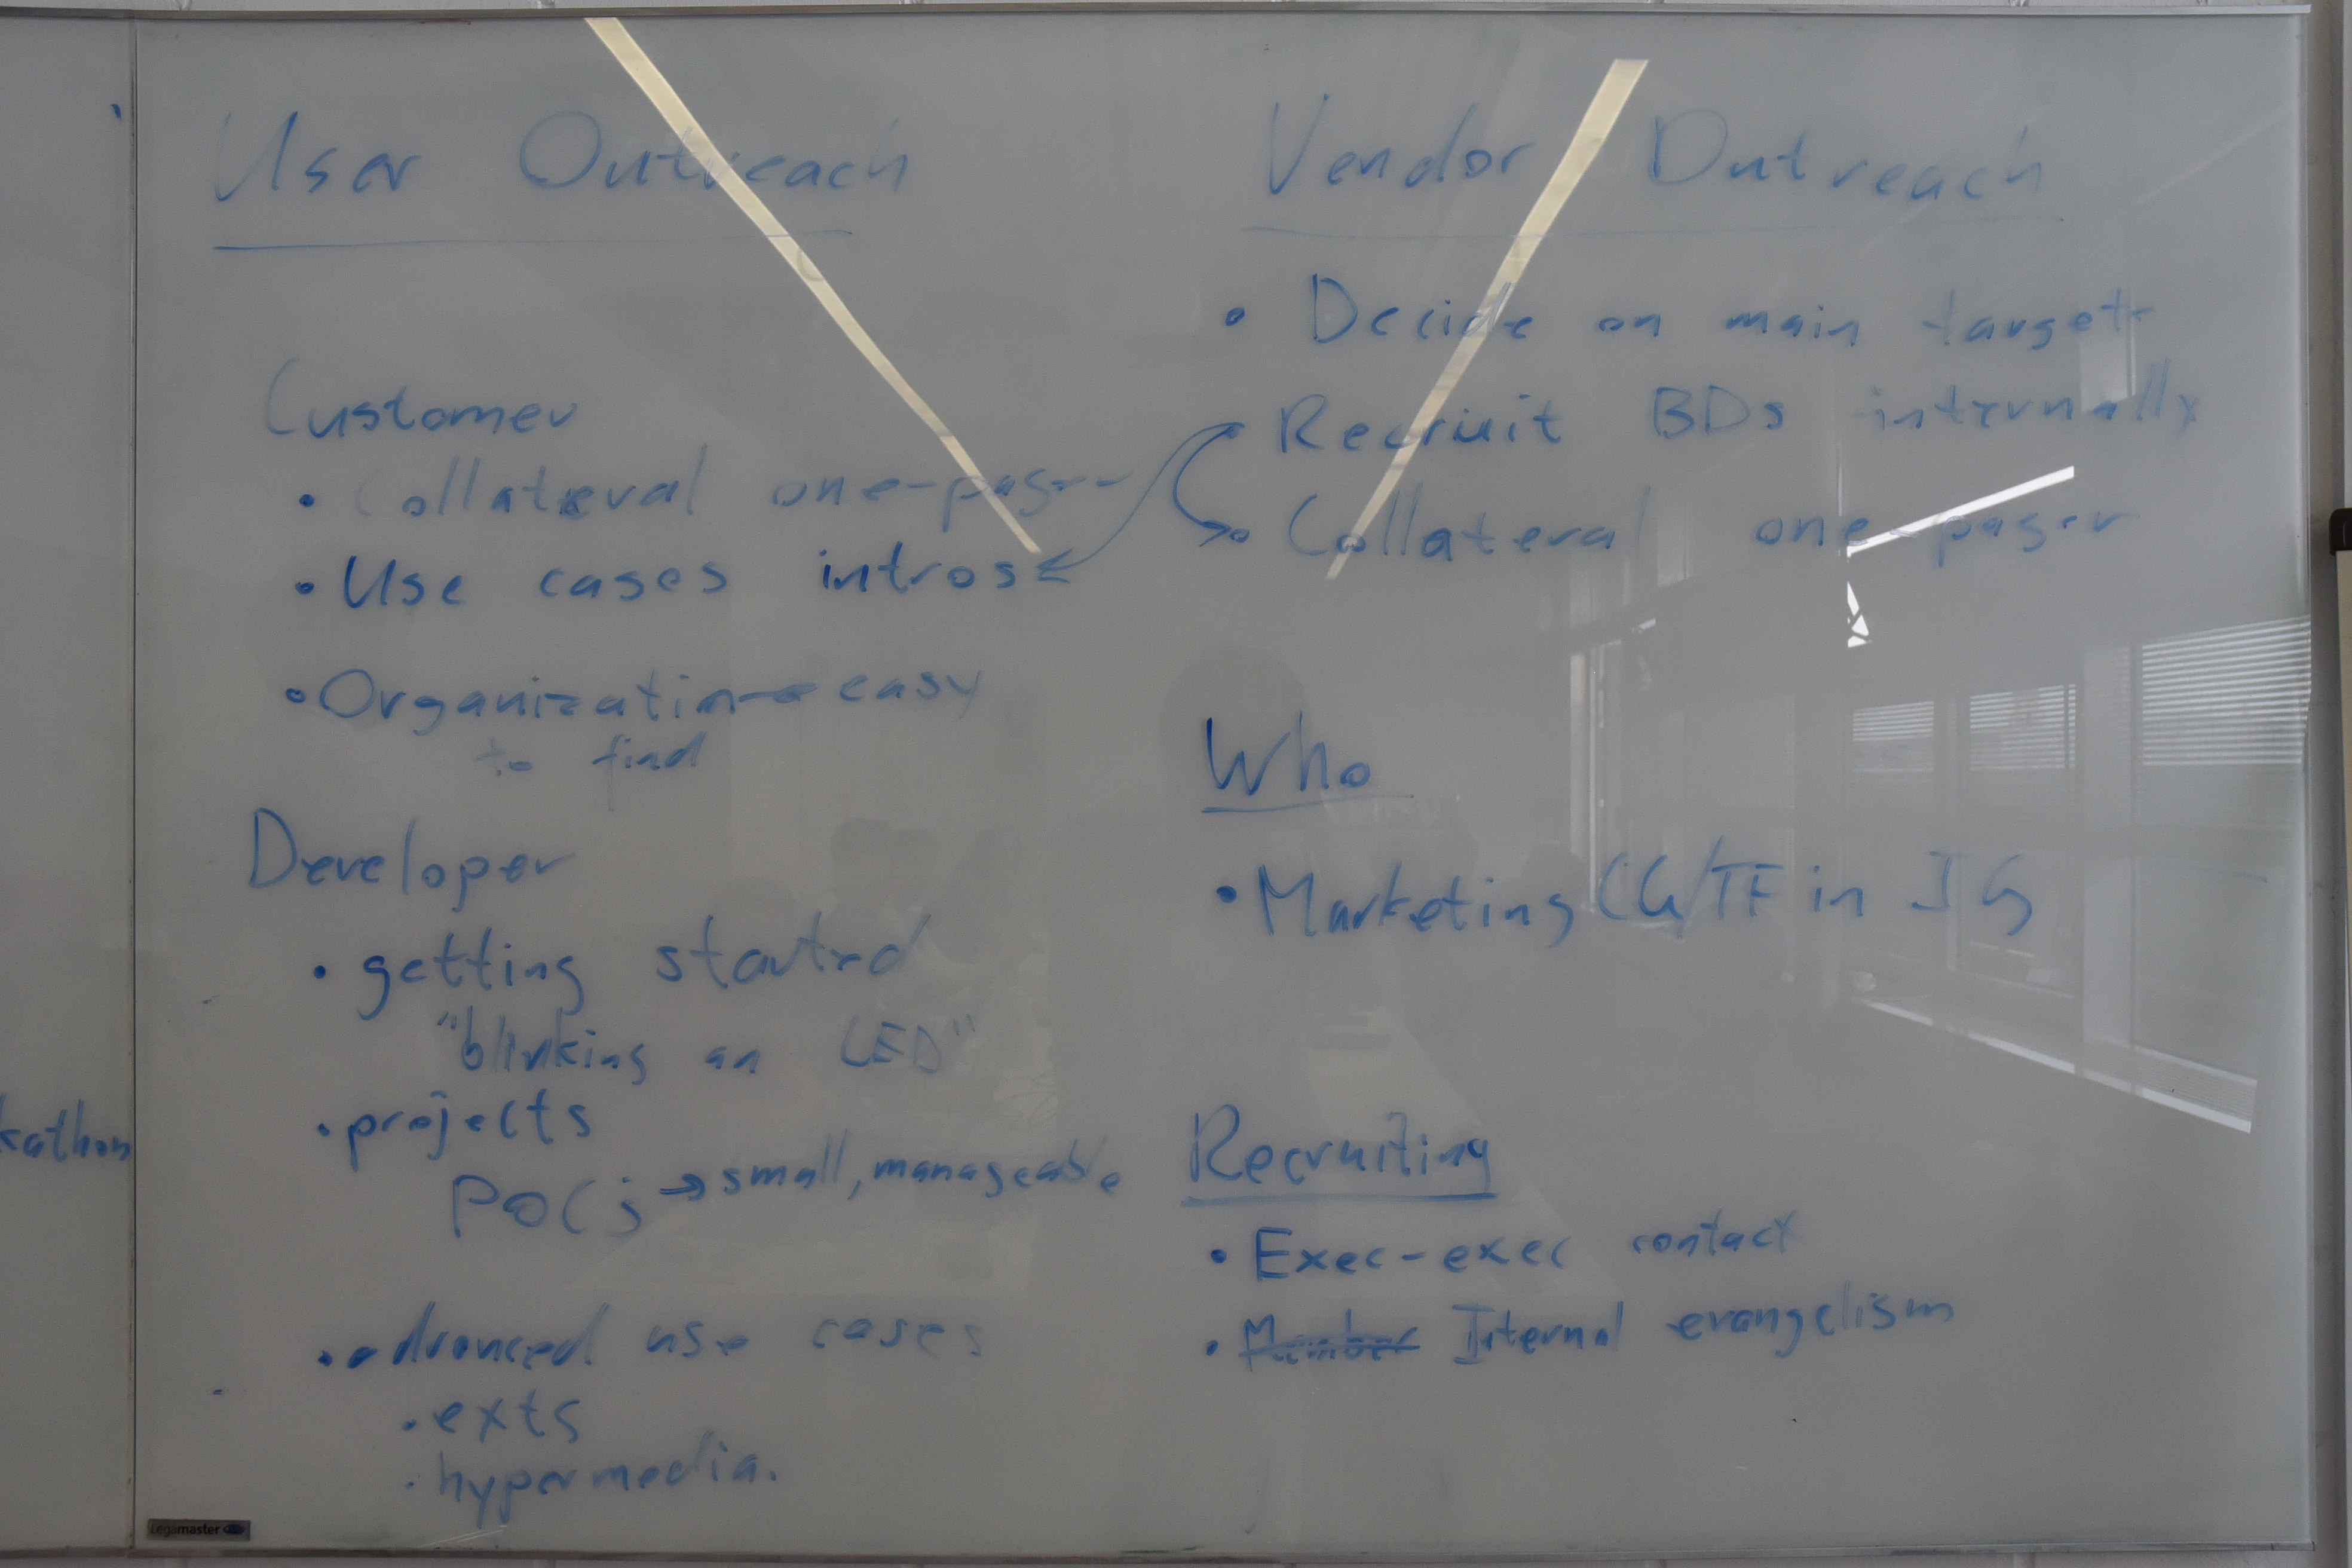 User Outreach
Customer
• Collateral one-pager
• Use cases intros
• Organization → easy
to find
Developer
• getting started
"blinking an LED"
• projects
POCs → small, manageable
• advanced use cases
• exts
• hypermedia.
Vendor Outreach
• Decide on main targets
• Recruit BDs internally
• Collateral one-pager
Who
• Marketing CG/TF in IG
Recruiting
• Exec-exec contact
• Member Internal evangelism
kathon
Legamaster